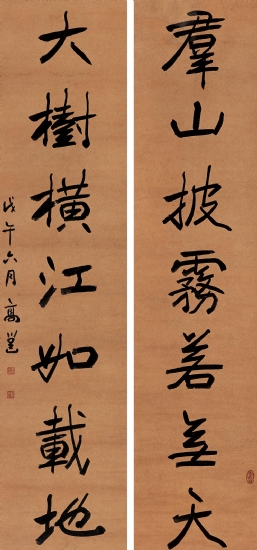 羣山披霧若無天
大樹橫江如載地
戊午六月高邕